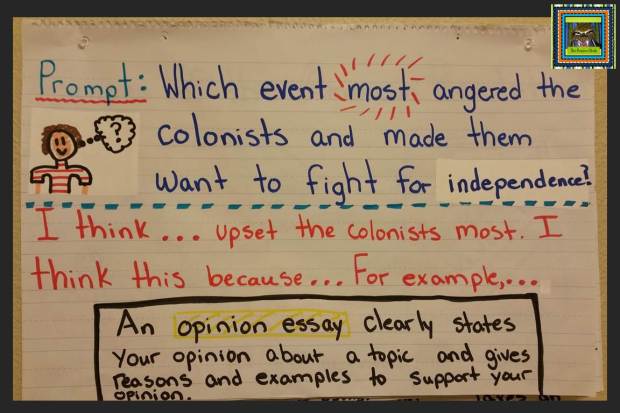 Prompt: Which event most angered the
?
colonists and made them
want to fight for independence?
I think... upset the colonists most. I
think this because... For example,...
An opinion essay clearly states
your opinion about a topic and gives
reasons and examples to support your
opinion.